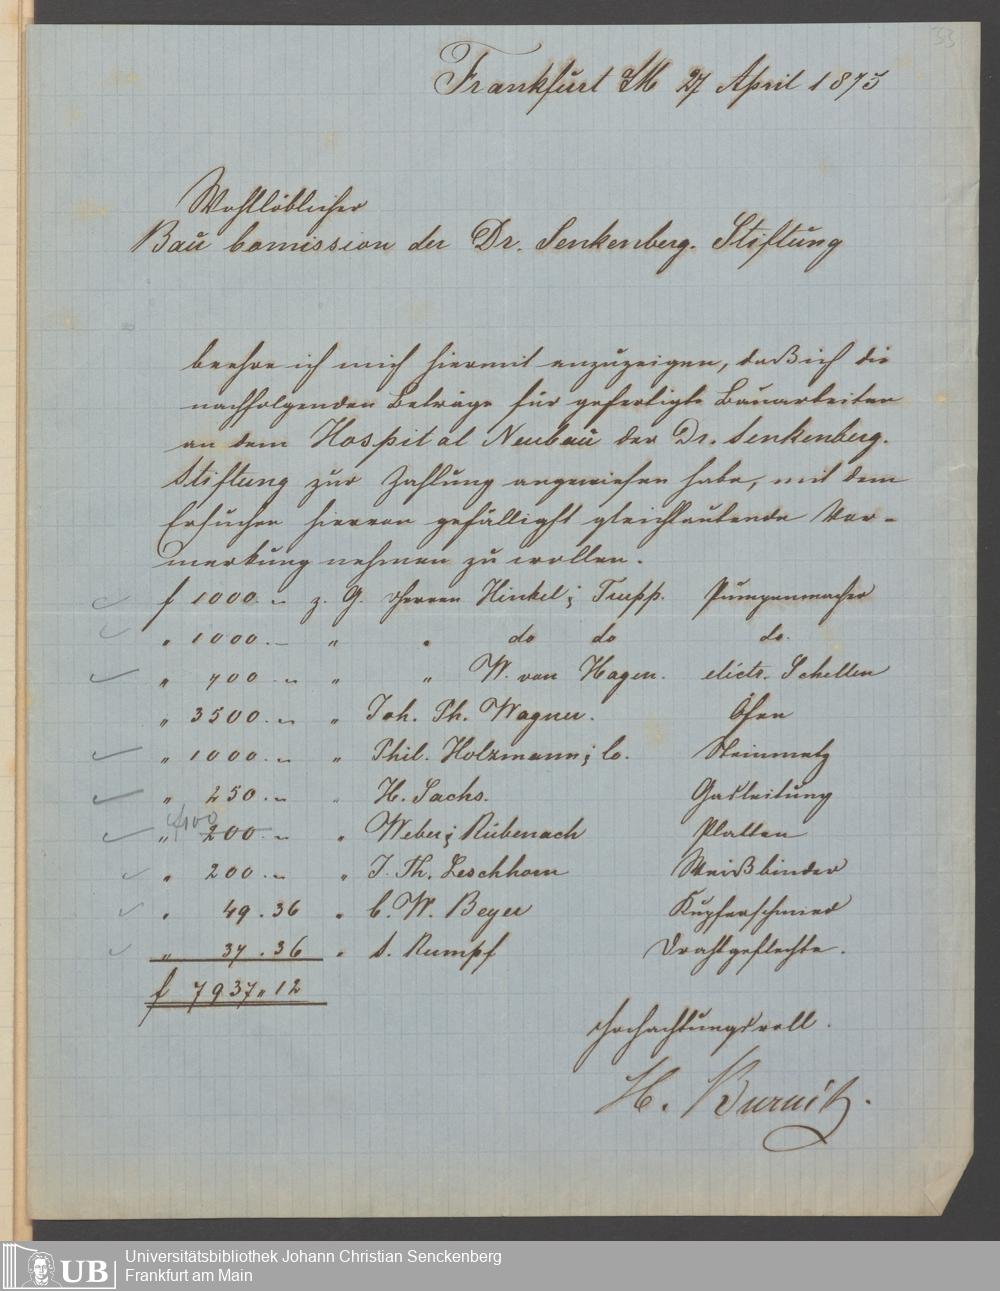 33
Frankfurt M 27 April 1875
Wohllöblicher
Bau Comission der Dr. Senkenberg. Stiftung
beehre ich mich hiermit anzuzeigen, daß ich die
nachfolgenden Beträge für gefertigte Bauarbeiten
an dem Hospital Neubau der Dr. Senkenberg.
Stiftung zur Zahlung angewiesen habe, mit dem
Ersuchen hiervon gefälligst gleichlautende Vor-
merkung nehmen zu wollen.
f 1000. " z. G. Herren Hinkel & Trupp. Pumpenmacher
" 1000. – " " do do do.
" 700. " " " W. von Hagen. electr. Schellen
" 3500. " " Joh. Ph. Wagner. Öfen
" 1000. " " Phil. Holzmann & Co. Steinmetz
" 250. " " H. Sachs. Gasleitung
" 200. " " Weber & Rübenach Platten
400
" 200. " " J. Th. Leschhorn Weißbinder
" 49. 36 " C. W. Beyer Kupferschmied
" 37. 36 " S. Rumpf Drahtgeflechte.
f 7937 " 12
Hochachtungsvoll.
H. Burnitz.
UB
Universitätsbibliothek Johann Christian Senckenberg
Frankfurt am Main